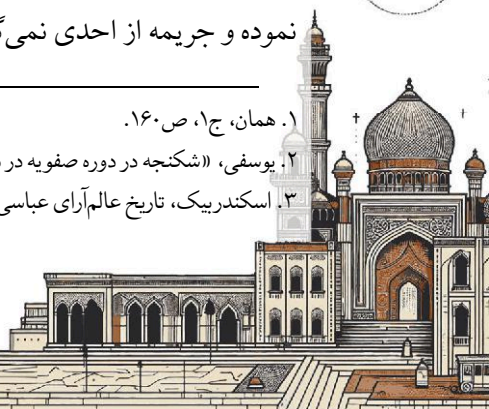 نموده و جریمه از احدی نمی‌
۱. همان، ج۱، ص۱۶۰.
۲. یوسفی، «شکنجه در دوره صفویه در
۳. اسکندربیک، تاریخ عالم‌آرای عباسی